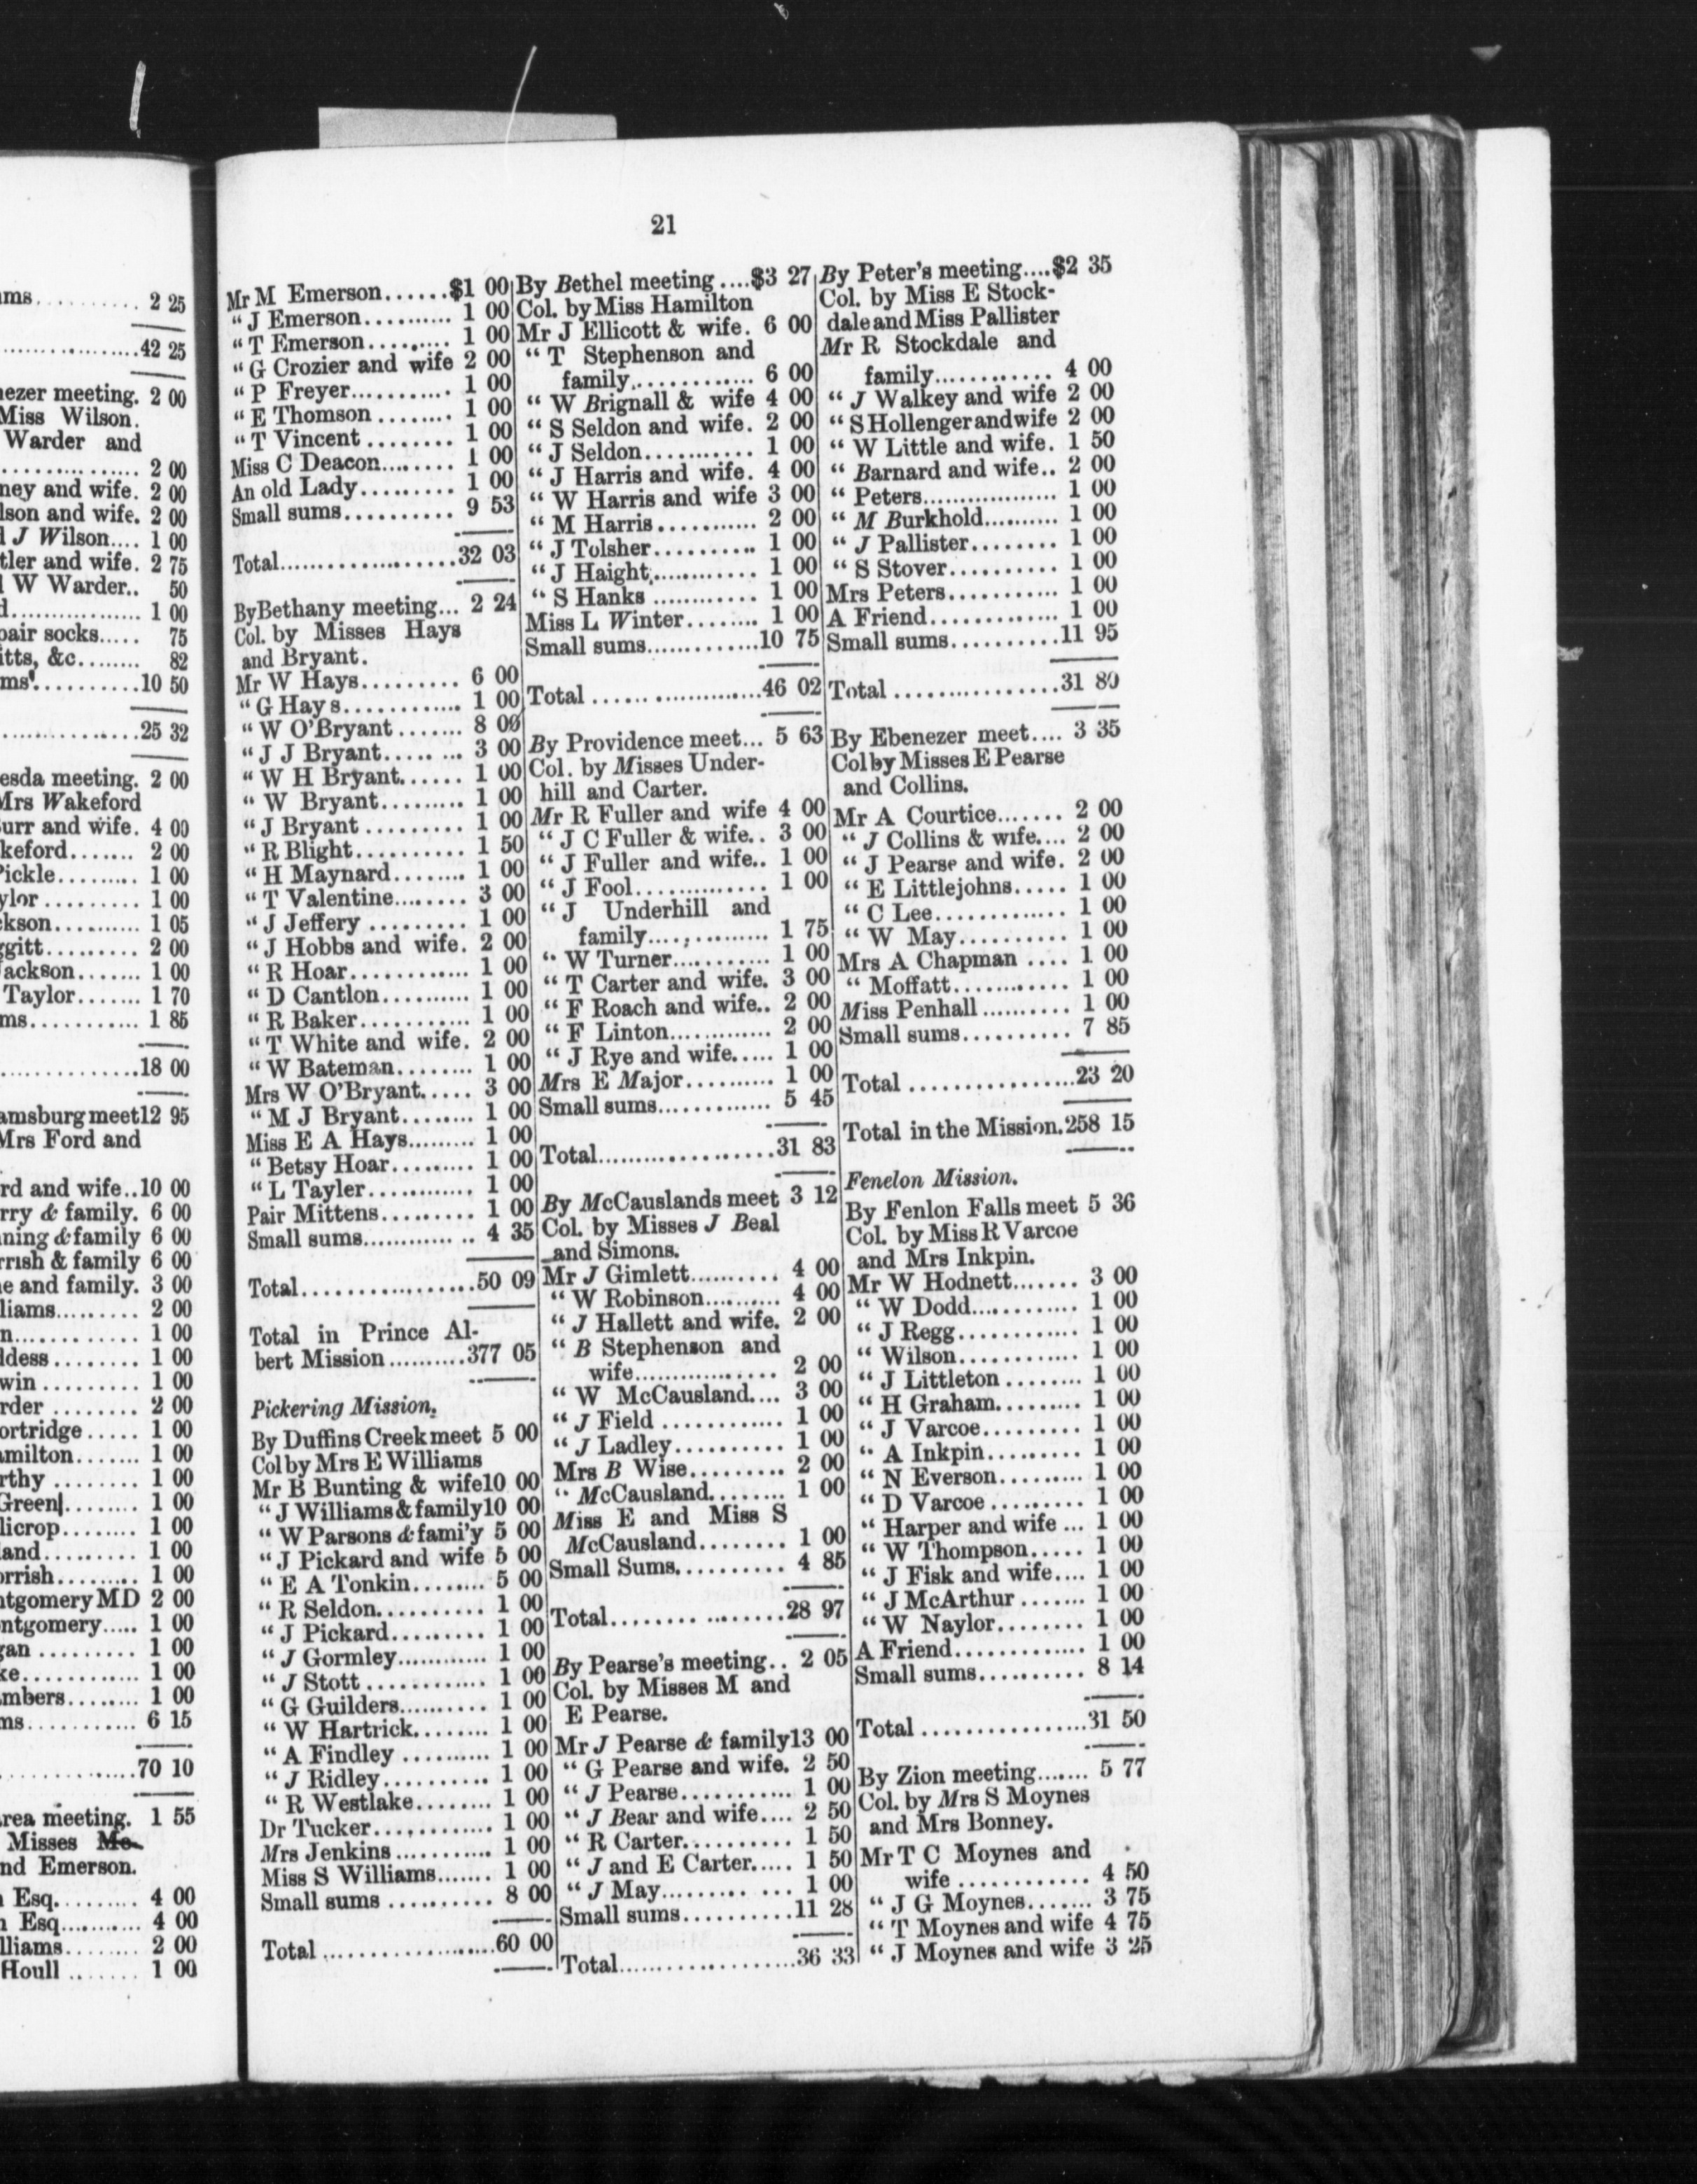 ms.......... 2 25
.............42 25
ezer meeting. 2 00
Miss Wilson.
Warder and
.............. 2 00
ney and wife. 2 00
lson and wife. 2 00
J Wilson.... 1 00
tler and wife. 2 75
W Warder.. 50
d............. 1 00
pair socks..... 75
itts, &c........ 82
ms'..........10 50
.............25 32
esda meeting. 2 00
Mrs Wakeford
urr and wife. 4 00
keford....... 2 00
Pickle......... 1 00
ylor ......... 1 00
kson.......... 1 05
ggitt......... 2 00
ackson....... 1 00
Taylor....... 1 70
ms........... 1 85
.............18 00
amsburg meet12 95
Mrs Ford and
rd and wife..10 00
rry & family. 6 00
ning & family 6 00
rrish & family 6 00
e and family. 3 00
liams......... 2 00
n............. 1 00
ldess ........ 1 00
win ......... 1 00
rder ........ 2 00
ortridge ..... 1 00
amilton....... 1 00
rthy ........ 1 00
Green|........ 1 00
licrop........ 1 00
land......... 1 00
orrish......... 1 00
ntgomery MD 2 00
ontgomery..... 1 00
gan ......... 1 00
ke............ 1 00
mbers........ 1 00
ms........... 6 15
.............70 10
rea meeting. 1 55
Misses Mc
nd Emerson.
Esq......... 4 00
Esq.......... 4 00
lliams........ 2 00
Houll ....... 1 00
21
Mr M Emerson......$1 00
" J Emerson.......... 1 00
" T Emerson......... 1 00
" G Crozier and wife 2 00
" P Freyer........... 1 00
" E Thomson ........ 1 00
" T Vincent ........ 1 00
Miss C Deacon........ 1 00
An old Lady......... 1 00
Small sums.......... 9 53
Total..................32 03
By Bethany meeting... 2 24
Col. by Misses Hays
and Bryant.
Mr W Hays......... 6 00
" G Hays............ 1 00
" W O'Bryant ....... 8 00
" J J Bryant........ 3 00
" W H Bryant...... 1 00
" W Bryant......... 1 00
" J Bryant ......... 1 00
" R Blight.......... 1 50
" H Maynard........ 1 00
" T Valentine........ 3 00
" J Jeffery ......... 1 00
" J Hobbs and wife. 2 00
" R Hoar............ 1 00
" D Cantlon.......... 1 00
" R Baker........... 1 00
" T White and wife. 2 00
" W Bateman........ 1 00
Mrs W O'Bryant..... 3 00
" M J Bryant........ 1 00
Miss E A Hays......... 1 00
" Betsy Hoar......... 1 00
" L Tayler............ 1 00
Pair Mittens......... 1 00
Small sums............ .. 4 35
Total..................50 09
Total in Prince Al-
bert Mission..........377 05
Pickering Mission.
By Duffins Creek meet 5 00
Col by Mrs E Williams
Mr B Bunting & wife10 00
" J Williams & family10 00
" W Parsons & fami'y 5 00
" J Pickard and wife 5 00
" E A Tonkin........ 5 00
" R Seldon.......... 1 00
" J Pickard......... 1 00
" J Gormley............ 1 00
" J Stott ............ 1 00
" G Guilders.......... 1 00
" W Hartrick........ 1 00
" A Findley .......... 1 00
" J Ridley.......... 1 00
" R Westlake........ 1 00
Dr Tucker............ 1 00
Mrs Jenkins ........... 1 00
Miss S Williams....... 1 00
Small sums .......... 8 00
Total ..................60 00
By Bethel meeting ....$3 27
Col. by Miss Hamilton
Mr J Ellicott & wife. 6 00
" T Stephenson and
family............. 6 00
" W Brignall & wife 4 00
" S Seldon and wife. 2 00
" J Seldon........... 1 00
" J Harris and wife. 4 00
" W Harris and wife 3 00
" M Harris........... 2 00
" J Tolsher........... 1 00
" J Haight............ 1 00
" S Hanks ............ 1 00
Miss L Winter........ 1 00
Small sums.............10 75
Total ..................46 02
By Providence meet... 5 63
Col. by Misses Under-
hill and Carter.
Mr R Fuller and wife 4 00
" J C Fuller & wife.. 3 00
" J Fuller and wife.. 1 00
" J Fool.............. 1 00
" J Underhill and
family............... 1 75
" W Turner........... 1 00
" T Carter and wife. 3 00
" F Roach and wife.. 2 00
" F Linton............ 2 00
" J Rye and wife..... 1 00
Mrs E Major.......... 1 00
Small sums............. 5 45
Total...................31 83
By McCauslands meet 3 12
Col. by Misses J Beal
and Simons.
Mr J Gimlett.......... 4 00
" W Robinson.......... 4 00
" J Hallett and wife. 2 00
" B Stephenson and
wife................. 2 00
" W McCausland.... 3 00
" J Field ............ 1 00
" J Ladley........... 1 00
Mrs B Wise......... 2 00
" McCausland........ 1 00
Miss E and Miss S
McCausland........ 1 00
Small Sums........... 4 85
Total..................28 97
By Pearse's meeting.. 2 05
Col. by Misses M and
E Pearse.
Mr J Pearse & family13 00
" G Pearse and wife. 2 50
" J Pearse............ 1 00
" J Bear and wife.... 2 50
" R Carter........... 1 50
" J and E Carter..... 1 50
" J May......... ... 1 00
Small sums..........11 28
Total...................36 33
By Peter's meeting....$2 35
Col. by Miss E Stock-
dale and Miss Pallister
Mr R Stockdale and
family............ 4 00
" J Walkey and wife 2 00
" S Hollenger and wife 2 00
" W Little and wife. 1 50
" Barnard and wife.. 2 00
" Peters.................. 1 00
" M Burkhold.......... 1 00
" J Pallister........ 1 00
" S Stover.......... 1 00
Mrs Peters........... 1 00
A Friend............. 1 00
Small sums..........11 95
Total ................31 80
By Ebenezer meet.... 3 35
Col by Misses E Pearse
and Collins.
Mr A Courtice....... 2 00
" J Collins & wife.... 2 00
" J Pearse and wife. 2 00
" E Littlejohns..... 1 00
" C Lee............. 1 00
" W May........... 1 00
Mrs A Chapman .... 1 00
" Moffatt............ 1 00
Miss Penhall .......... 1 00
Small sums.......... 7 85
Total ................23 20
Total in the Mission.258 15
Fenelon Mission.
By Fenlon Falls meet 5 36
Col. by Miss R Varcoe
and Mrs Inkpin.
Mr W Hodnett....... 3 00
" W Dodd............ 1 00
" J Regg............. 1 00
" Wilson............. 1 00
" J Littleton ........ 1 00
" H Graham......... 1 00
" J Varcoe.......... 1 00
" A Inkpin.......... 1 00
" N Everson......... 1 00
" D Varcoe ......... 1 00
" Harper and wife ... 1 00
" W Thompson..... 1 00
" J Fisk and wife.... 1 00
" J McArthur ....... 1 00
" W Naylor........ 1 00
A Friend............. 1 00
Small sums.......... 8 14
Total ................31 50
By Zion meeting....... 5 77
Col. by Mrs S Moynes
and Mrs Bonney.
Mr T C Moynes and
wife ............ 4 50
" J G Moynes....... 3 75
" T Moynes and wife 4 75
" J Moynes and wife 3 25